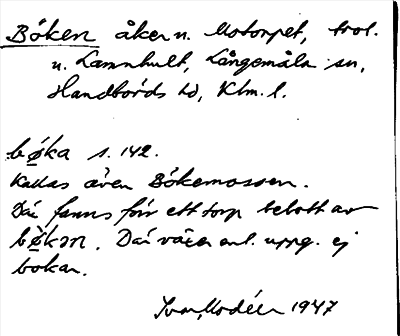 Böken åker n. Motorpet, trol.
u. Lammhult, Långemåla sn,
Handbörds hd, Klm. l.
bøka s. 142.
Kallas även Bökemossen.
Där fanns förr ett torp belott av
bøkən. Där växer enl. uppg. ej
bokar.
Ivar Modéer 1947